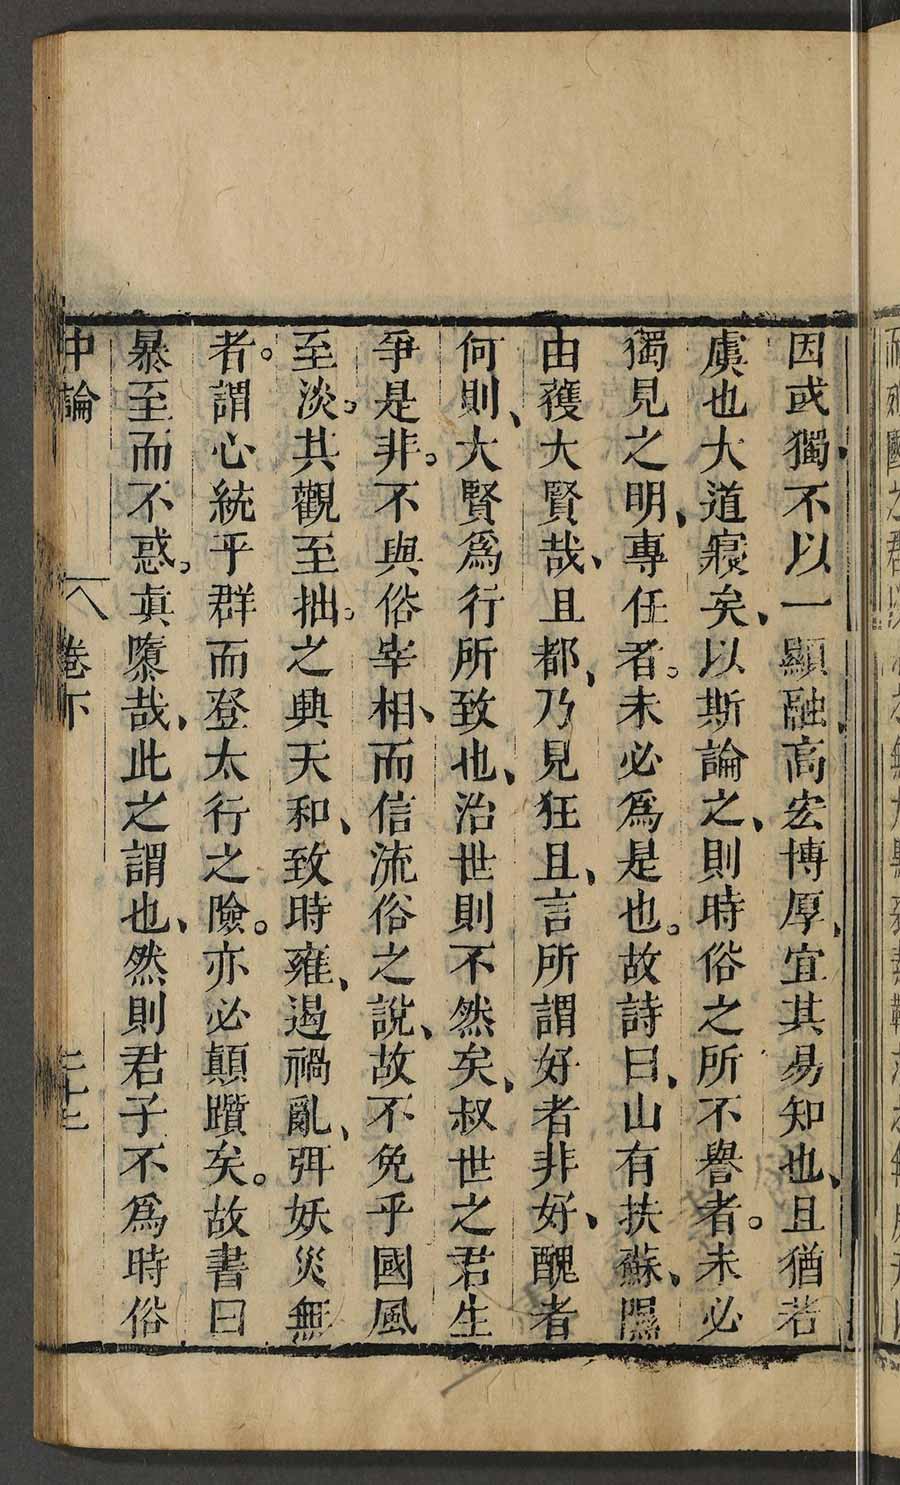 因或獨、不以一顯融、高宏博厚、宜其易知也、且猶若
虞也大道寢矣、以斯論之、則時俗之所不譽者。未必
獨見之明、專任者。未必爲是也。故詩曰、山有扶蘇、隰
由獲大賢哉、且都、乃見狂且、言所謂好者非好、醜者
何則、大賢爲行所致也、治世則不然矣、叔世之君生
爭是非。不與俗宰相、而信流俗之說、故不免乎國風
至淡。其觀至拙。之興天和、致時雍、遏禍亂、弭妖災無
者。謂心統乎群而登太行之險。亦必顛躓矣。故書曰
暴至而不惑。真隳哉、此之謂也、然則君子不爲時俗
中論 卷下 二十七